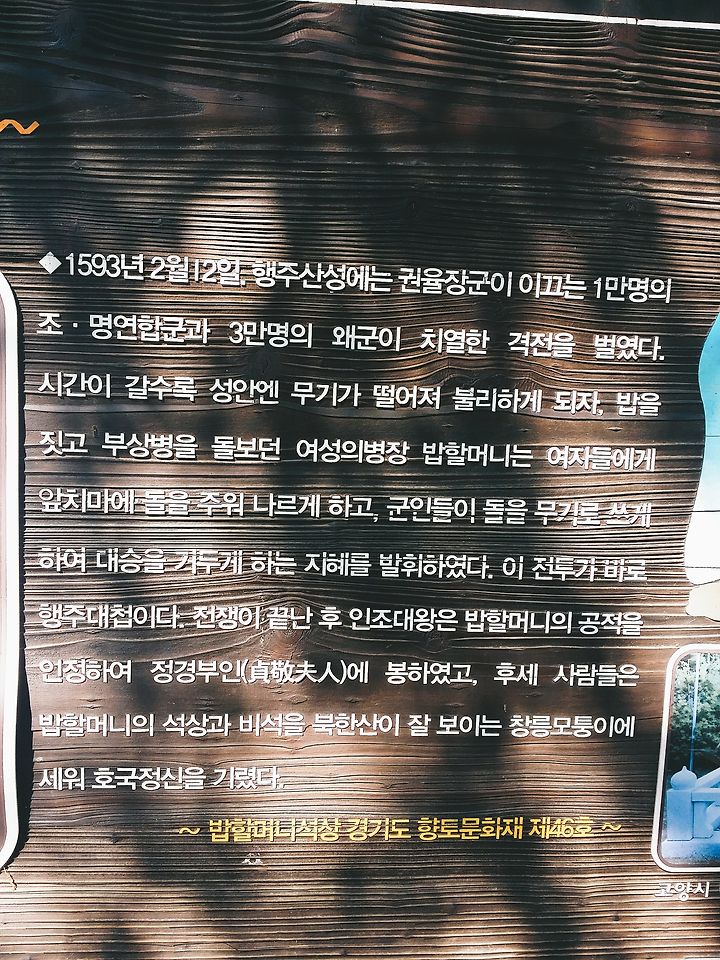 ◆1593년 2월12일. 행주산성에는 권율장군이 이끄는 1만명의
조·명연합군과 3만명의 왜군이 치열한 격전을 벌였다.
시간이 갈수록 성안엔 무기가 떨어져 불리하게 되자, 밥을
짓고 부상병을 돌보던 여성의병장 밥할머니는 여자들에게
앞치마에 돌을 주워 나르게 하고, 군인들이 돌을 무기로 쓰게
하여 대승을 거두게 하는 지혜를 발휘하였다. 이 전투가 바로
행주대첩이다. 전쟁이 끝난 후 인조대왕은 밥할머니의 공적을
인정하여 정경부인(貞敬夫人)에 봉하였고, 후세 사람들은
밥할머니의 석상과 비석을 북한산이 잘 보이는 창릉모퉁이에
세워 호국정신을 기렸다.
~ 밥할머니석상 경기도 향토문화재 제46호 ~
고양시